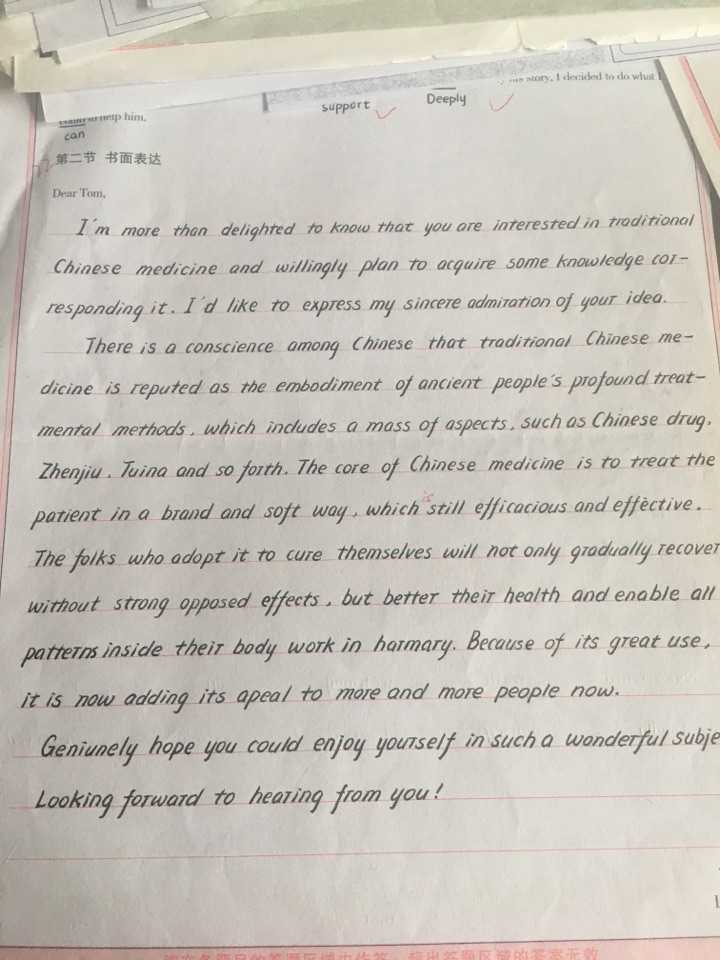 story, I decided to do what I
support
Deeply
help him.
can
第二节 书面表达
Dear Tom,
I'm more than delighted to know that you are interested in traditional
Chinese medicine and willingly plan to acquire some knowledge cor-
responding it. I'd like to express my sincere admiration of your idea.
There is a conscience among Chinese that traditional Chinese me-
dicine is reputed as the embodiment of ancient people's profound treat-
mental methods, which includes a mass of aspects, such as Chinese drug,
Zhenjiu, Tuina and so forth. The core of Chinese medicine is to treat the
is
patient in a brand and soft way, which still efficacious and effective.
The folks who adopt it to cure themselves will not only gradually recover
without strong opposed effects, but better their health and enable all
patterns inside their body work in harmary. Because of its great use,
it is now adding its apeal to more and more people now.
Geniunely hope you could enjoy yourself in such a wonderful subje
Looking forward to hearing from you!